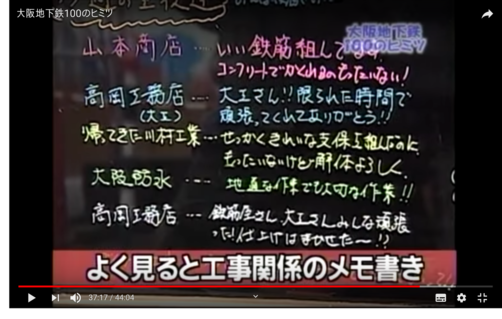 大阪地下鉄100のヒミツ
大阪地下鉄
100のヒミツ
山本商店…いい鉄筋組してるね
コンクリートでかくれるのもったいない!
高岡工務店…大工さん!!限られた時間で
(大工)
頑張ってくれてありがとう!!
帰ってきた川村工業…せっかくきれいな支保工組んだのに
もったいないけど解体よろしく
大阪防水…地道な作業でも大切な作業!!
高岡工務店…鉄筋屋さん、大工さんみんな頑張
った!仕上げはまかせた〜!?
よく見ると工事関係のメモ書き
37:17 / 44:04